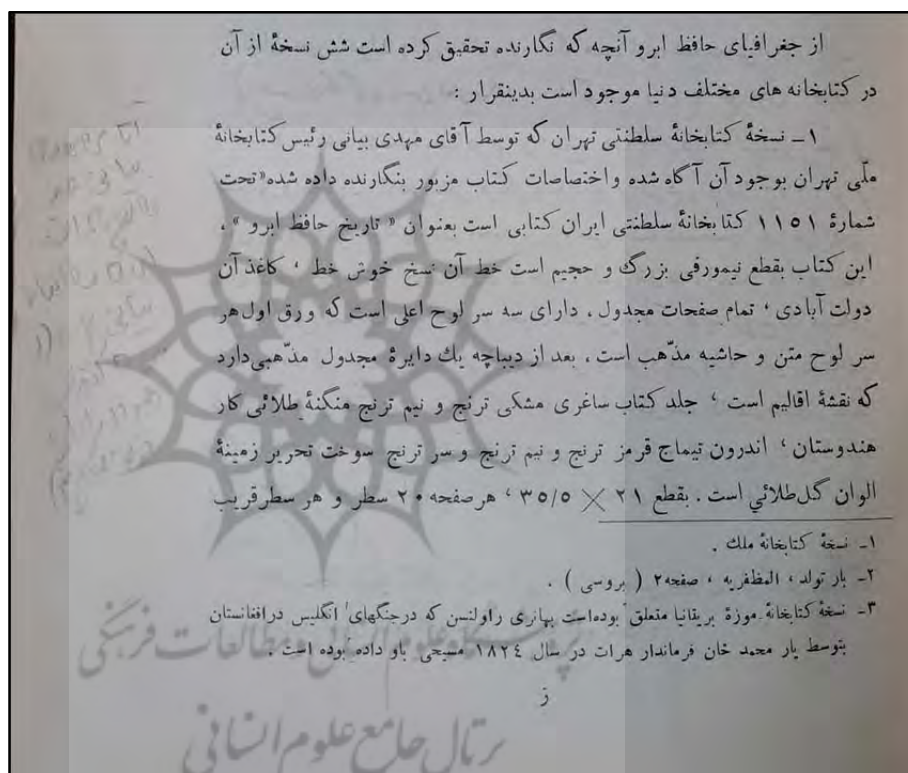 از جغرافیای حافظ ابرو آنچه که نگارنده تحقیق کرده است شش نسخهٔ از آن
در کتابخانه های مختلف دنیا موجود است بدینقرار :
۱ـ نسخهٔ کتابخانهٔ سلطنتی تهران که توسط آقای مهدی بیانی رئیس کتابخانهٔ
ملّی تهران بوجود آن آگاه شده و اختصاصات کتاب مزبور بنگارنده داده شده «تحت
شمارهٔ ۱۱۵۱ کتابخانهٔ سلطنتی ایران کتابی است بعنوان « تاریخ حافظ ابرو » ،
این کتاب بقطع نیمورقی بزرگ و حجیم است خط آن نسخ خوش خط ، کاغذ آن
دولت آبادی ، تمام صفحات مجدول ، دارای سه سر لوح اعلی است که ورق اول هر
سر لوح متن و حاشیه مذّهب است ، بعد از دیباچه یک دایرهٔ مجدول مذّهبی دارد
که نقشهٔ اقالیم است ، جلد کتاب ساغری مشکی ترنج و نیم ترنج منگنهٔ طلائی کار
هندوستان ، اندرون تیماج قرمز ترنج و نیم ترنج و سر ترنج سوخت تحریر زمینهٔ
الوان گل‌طلائی است . بقطع ۲۱ × ۳۵/۵ ، هر صفحه ۲۰ سطر و هر سطر قریب
۱ـ نسخهٔ کتابخانهٔ ملک .
۲ـ بار تولد ، المظفریه ، صفحه ۲ ( بروسی ) .
۳ـ نسخهٔ کتابخانهٔ موزهٔ بریتانیا متعلق بوده‌است بهانری راولنسن که درجنگهای انگلیس درافغانستان
بتوسط یار محمد خان فرماندار هرات در سال ۱۸۲٤ مسیحی باو داده بوده است .
ز
پژوهشگاه علوم انسانی و مطالعات فرهنگی
پرتال جامع علوم انسانی